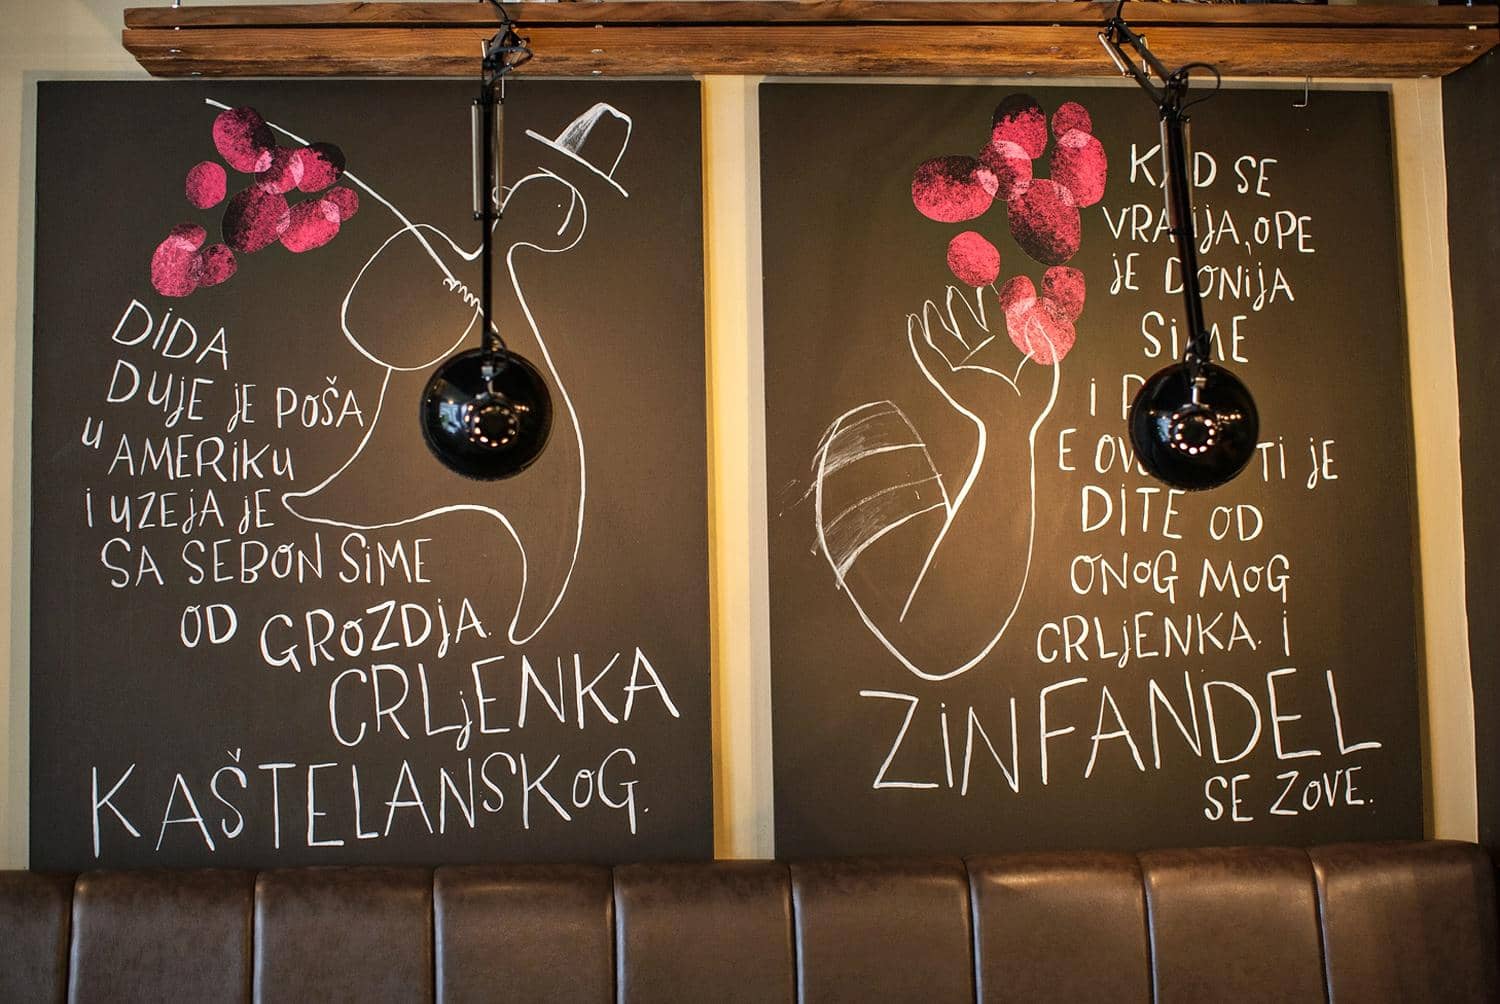 DIDA
DUJE JE POŠA
U AMERIKU
I UZEJA JE
SA SEBON SIME
OD GROZDJA.
CRLJENKA
KAŠTELANSKOG.
KAD SE
VRATIJA, OPE
JE DONIJA
SIME
I
E TI JE
DITE OD
ONOG MOG
CRLJENKA. I
ZINFANDEL
SE ZOVE.